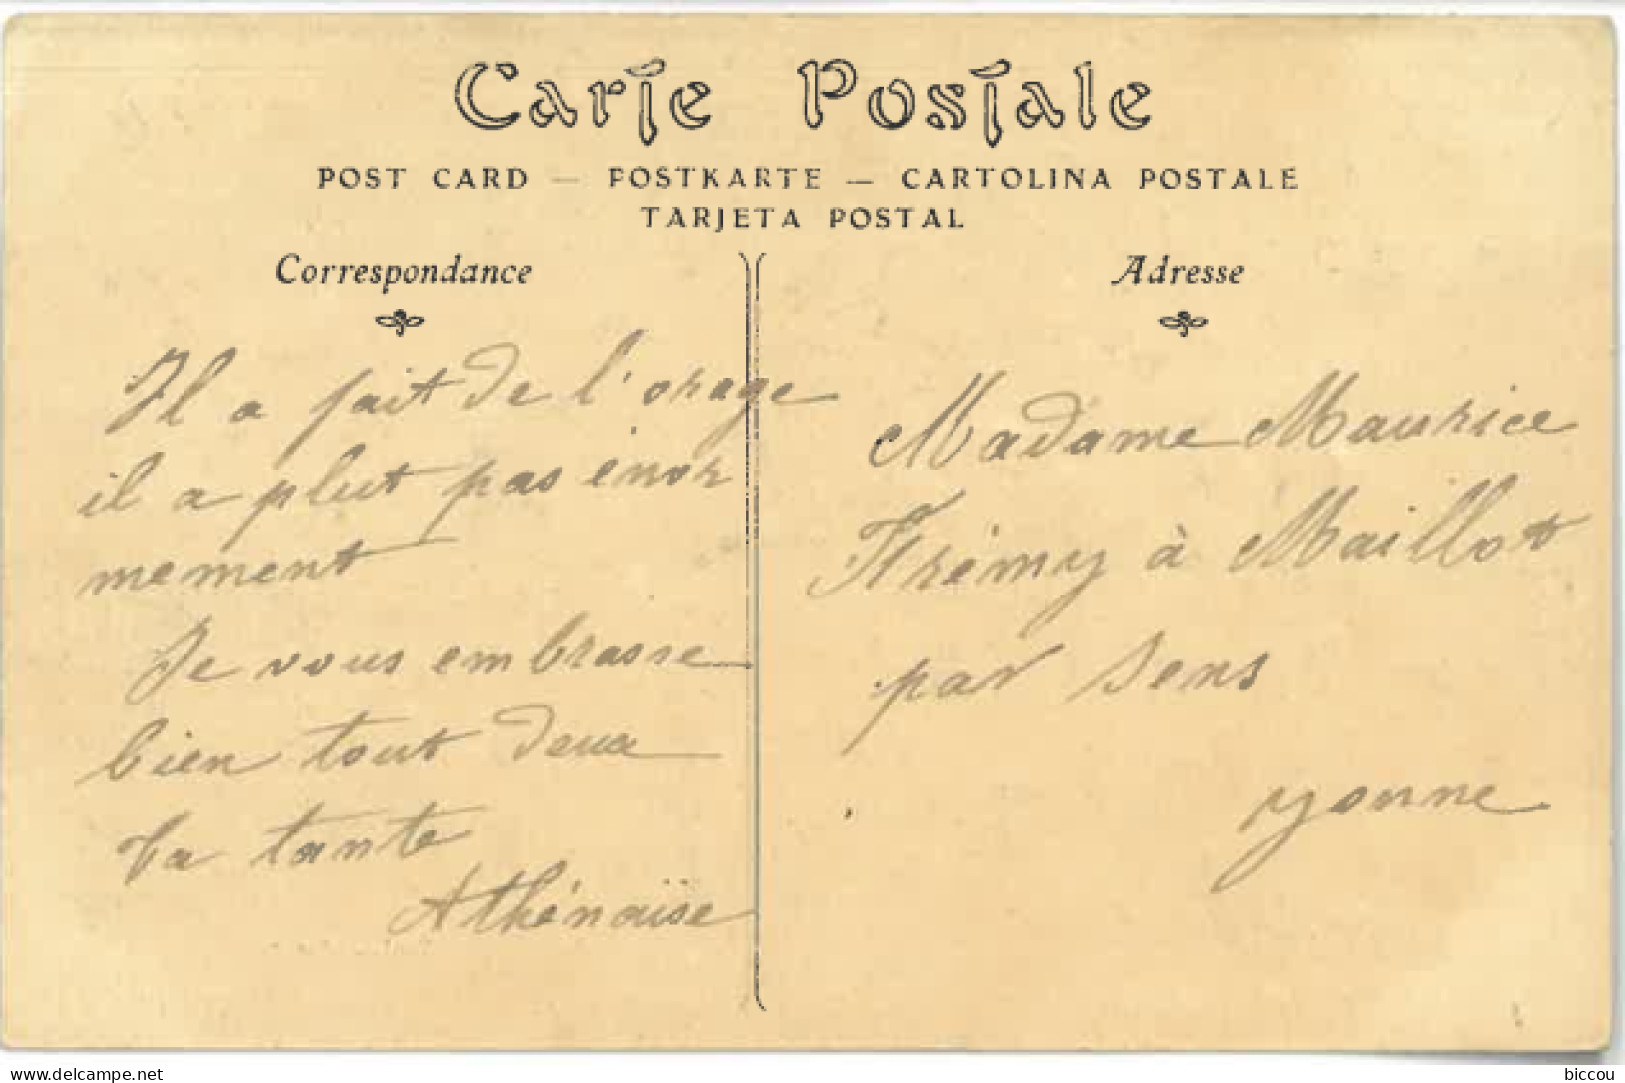 Carte Postale
POST CARD — POSTKARTE — CARTOLINA POSTALE
TARJETA POSTAL
Correspondance
Il a fait de l'orage
il a plut pas énor
mement
Je vous embrasse
bien tout deux
ta tante
Athénaïse
Adresse
Madame Maurice
Frémy à Maillot
par Sens
yonne
www.delcampe.net
biccou